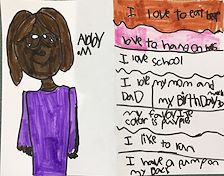 ABBY
.M
I love to eat
love to hang on
I love school
I love my mom and
DaD
my BirthDay
my favorite
color is purple
I like to run
I have a pump on
my back